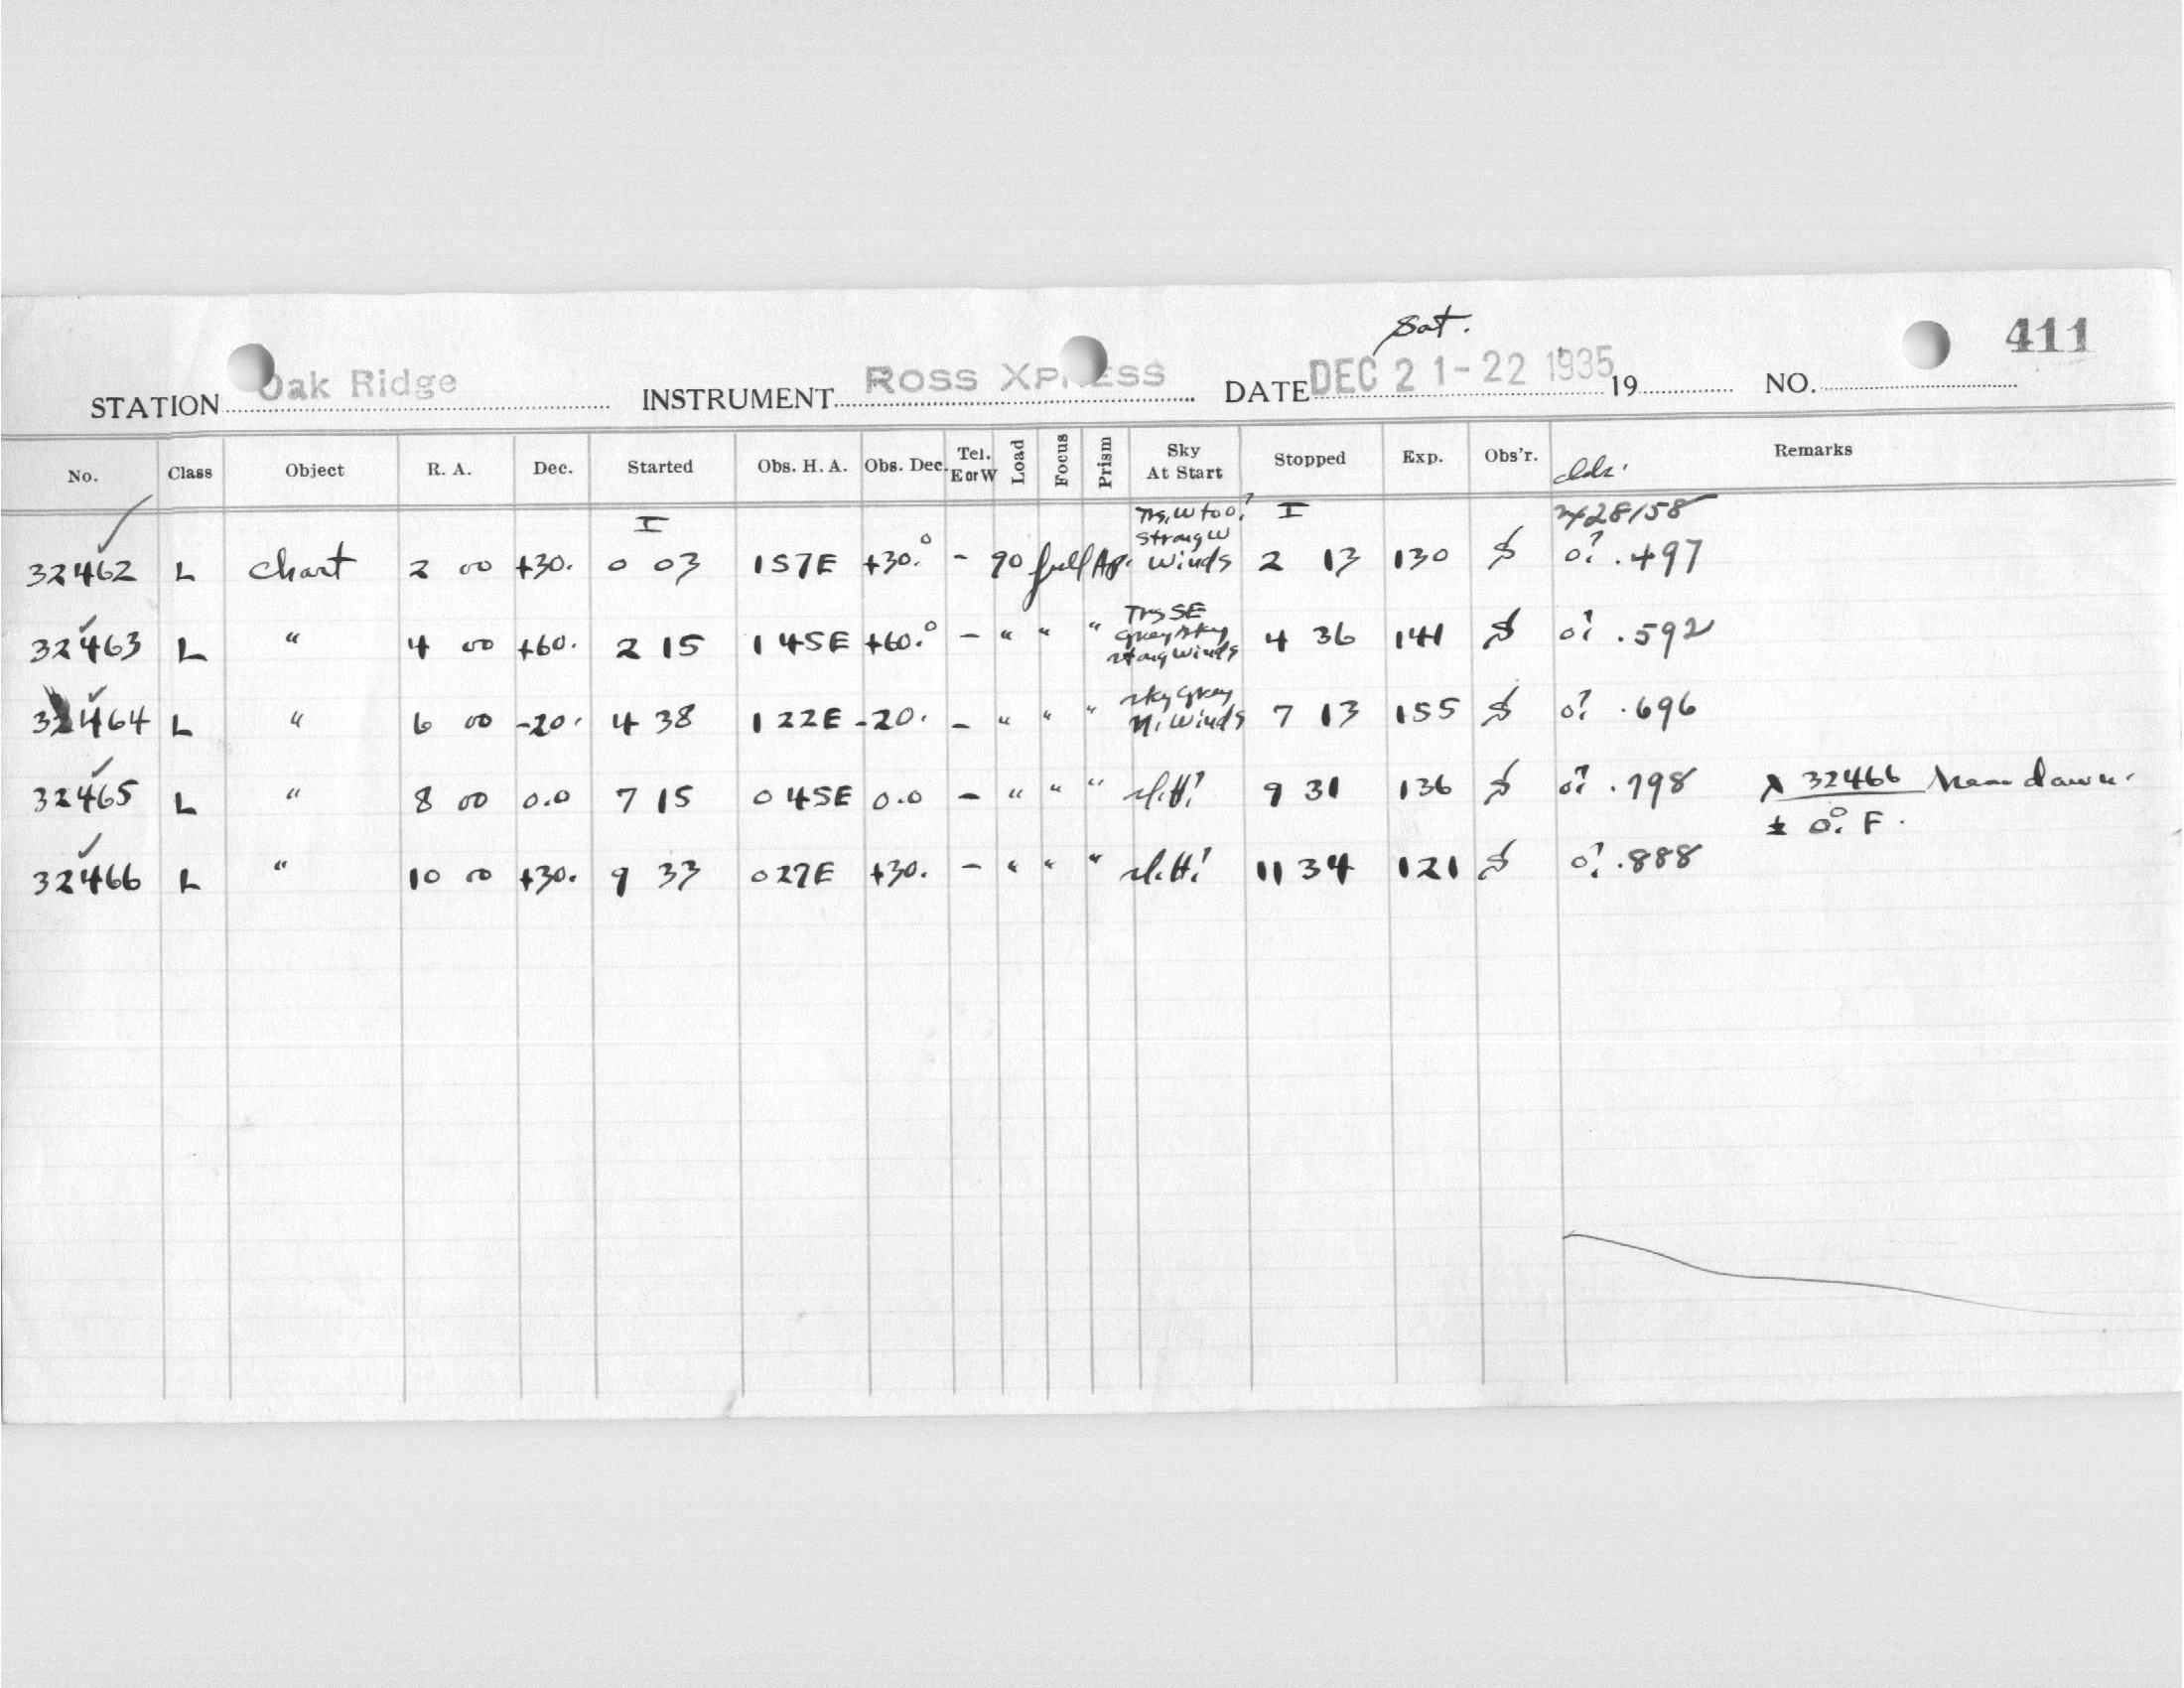 Sat.
411
STATION Oak Ridge INSTRUMENT ROSS XPRESS DATE DEC 21-22 1935 19 NO.
No. Class Object R. A. Dec. Started Obs. H. A. Obs. Dec. Tel. E or W Load Focus Prism Sky At Start Stopped Exp. Obs'r. Remarks
I I 2428158
32462 L Chart 2 00 +30. 0 03 157E +30.° - 90 full Ap. strong W winds 2 13 130 .497
32463 L " 4 00 +60. 2 15 145E +60.° - " " " SE Grey sky strong winds 4 36 141 .592
32464 L " 6 00 -20. 4 38 122E -20. - " " " sky Grey N. Winds 7 13 155 .696
32465 L " 8 00 0.0 7 15 045E 0.0 - " " " 9 31 136 .798 32466 Near dawn.
± 0° F.
32466 L " 10 00 +30. 9 33 027E +30. - " " " 11 34 121 .888